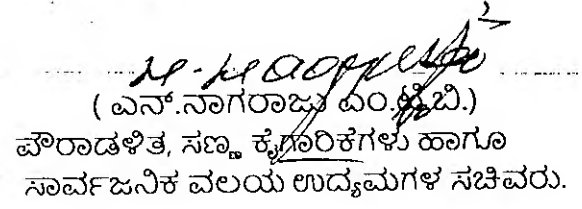 ( ಎನ್.ನಾಗರಾಜು ಎಂ.ಟಿ.ಬಿ.)
ಪೌರಾಡಳಿತ, ಸಣ್ಣ ಕೈಗಾರಿಕೆಗಳು ಹಾಗೂ
ಸಾರ್ವಜನಿಕ ವಲಯ ಉದ್ಯಮಗಳ ಸಚಿವರು.